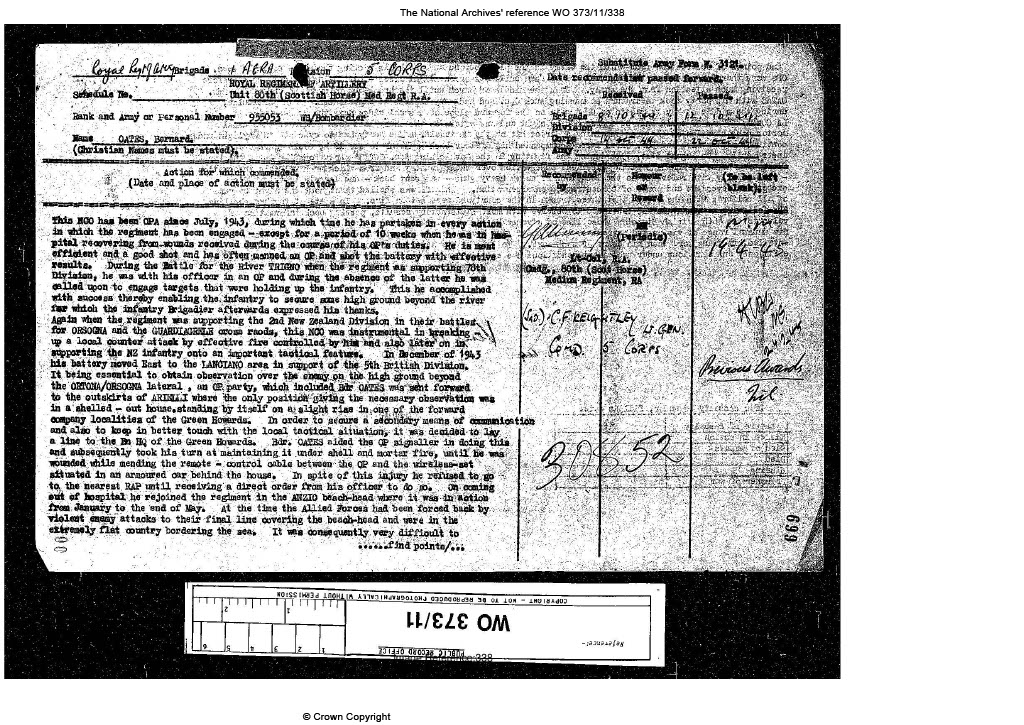 The National Archives' reference WO 373/11/338
Brigade AGRA Division 5 CORPS
Substitute Army Form W. 3121.
Date recommendation passed forward.
ROYAL REGIMENT OF ARTILLERY
Schedule No. Unit 80th (Scottish Horse) Med Regt R.A.
Received Passed
Rank and Army or Personal Number 955053 WS/Bombardier
Brigade
Division
Name OATES, Bernard.
Corps
(Christian Names must be stated).
Army
Action for which commended.
(Date and place of action must be stated)
Recommended by
Honour or Reward
(To be left blank).
This NCO has been OPA since July, 1943, during which time he has partaken in every action
in which the regiment has been engaged - except for a period of 10 weeks when he was in hos-
pital recovering from wounds received during the course of his OP's duties. He is most
efficient and a good shot and has often manned an OP and shot the battery with effective
results. During the Battle for the River TRIGNO when the regiment was supporting 78th
Division, he was with his officer in an OP and during the absence of the latter he was
called upon to engage targets that were holding up the infantry. This he accomplished
with success thereby enabling the infantry to secure some high ground beyond the river
for which the infantry Brigadier afterwards expressed his thanks.
Again when the regiment was supporting the 2nd New Zealand Division in their battles
for ORSOGNA and the GUARDIAGRELE cross raods, this NCO was instrumental in breaking
up a local counter attack by effective fire controlled by him and also later on in
supporting the NZ infantry onto an important tactical feature. In December of 1943
his battery moved East to the LANCIANO area in support of the 5th British Division.
It being essential to obtain observation over the enemy on the high ground beyond
the ORTONA/ORSOGNA lateral , an OP party, which included Bdr OATES was sent forward
to the outskirts of ARIELLI where the only position giving the necessary observation was
in a shelled - out house standing by itself on a slight rise in one of the forward
company localities of the Green Howards. In order to secure a secondary means of communication
and also to keep in better touch with the local tactical situation, it was decided to lay
a line to the Bn HQ of the Green Howards. Bdr. OATES aided the OP signaller in doing this
and subsequently took his turn at maintaining it under shell and mortar fire, until he was
wounded while mending the remote - control cable between the OP and the wireless-set
situated in an armoured car behind the house. In spite of this injury he refused to go
to the nearest RAP until receiving a direct order from his officer to do so. On coming
out of hospital he rejoined the regiment in the ANZIO beach-head where it was in action
from January to the end of May. At the time the Allied Forces had been forced back by
violent enemy attacks to their final line covering the beach-head and were in the
extremely flat country bordering the sea. It was consequently very difficult to
......find points/...
Lt-Col, R.A.
Comdg., 80th (Scot Horse)
Medium Regiment, RA
(Sgd.) C.F. KEIGHTLEY
Lt. GEN.
Comd. 5 CORPS
MM
(Periodic)
19-4-45
Previous Awards
Nil
30852
699
COPYRIGHT - NOT TO BE REPRODUCED PHOTOGRAPHICALLY WITHOUT PERMISSION
PUBLIC RECORD OFFICE
Reference:-
WO 373/11
1 2 3 4 5 6
1 2
© Crown Copyright